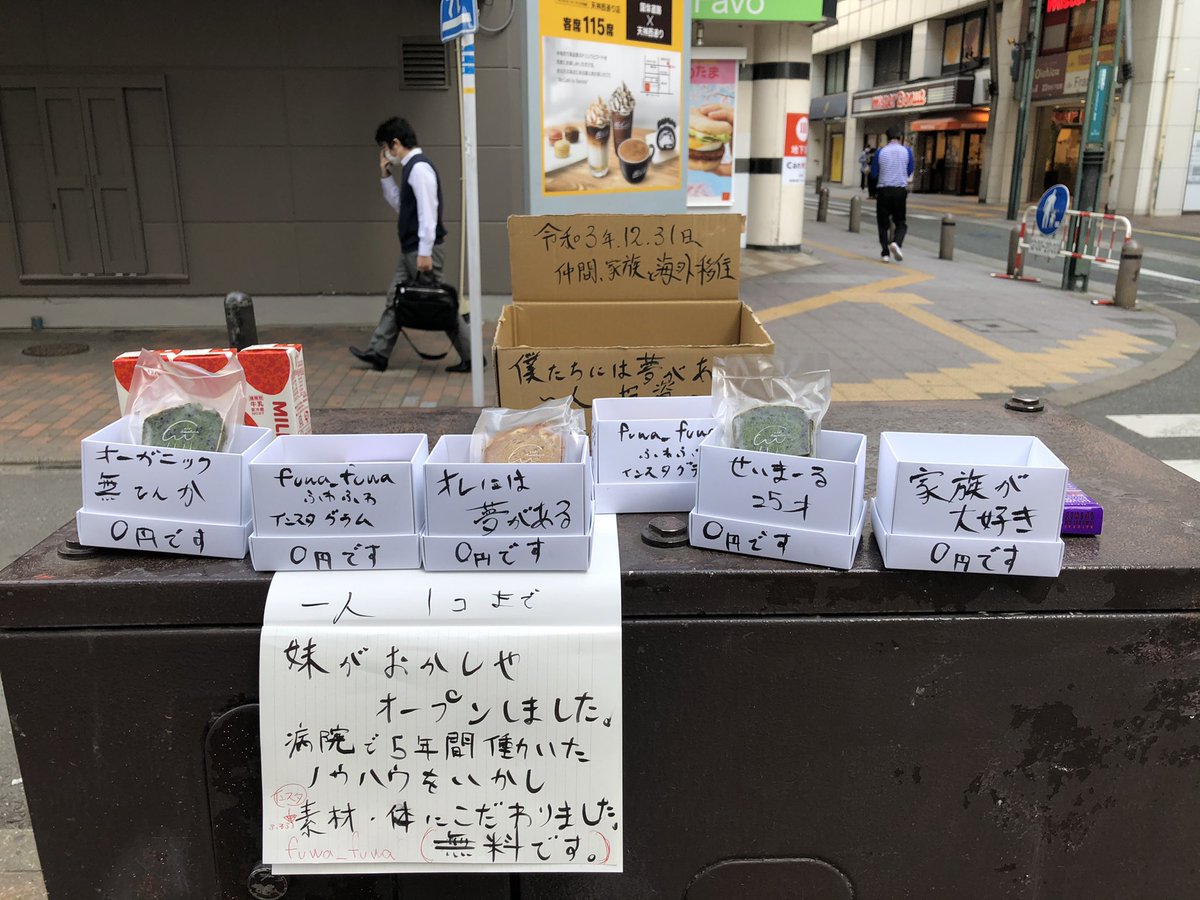 客席115席
天神西通り
Favo
令和3年.12.31日
仲間、家族と海外移住
僕たちには夢があ
一人
MIL
オーガニック
無てんか
0円です
fuwa_fuwa
ふわふわ
インスタグラム
0円です
オレには
夢がある
0円です
fuwa_fuwa
ふわふわ
インスタグラ
せいまーる
25才
0円です
家族が
大好き
0円です
一人 1コまで
妹がおかしや
オープンしました。
病院で5年間働いた
ノウハウをいかし
素材・体にこだわりました。
インスタ
ふわふわ
fuwa_fuwa
(無料です。)